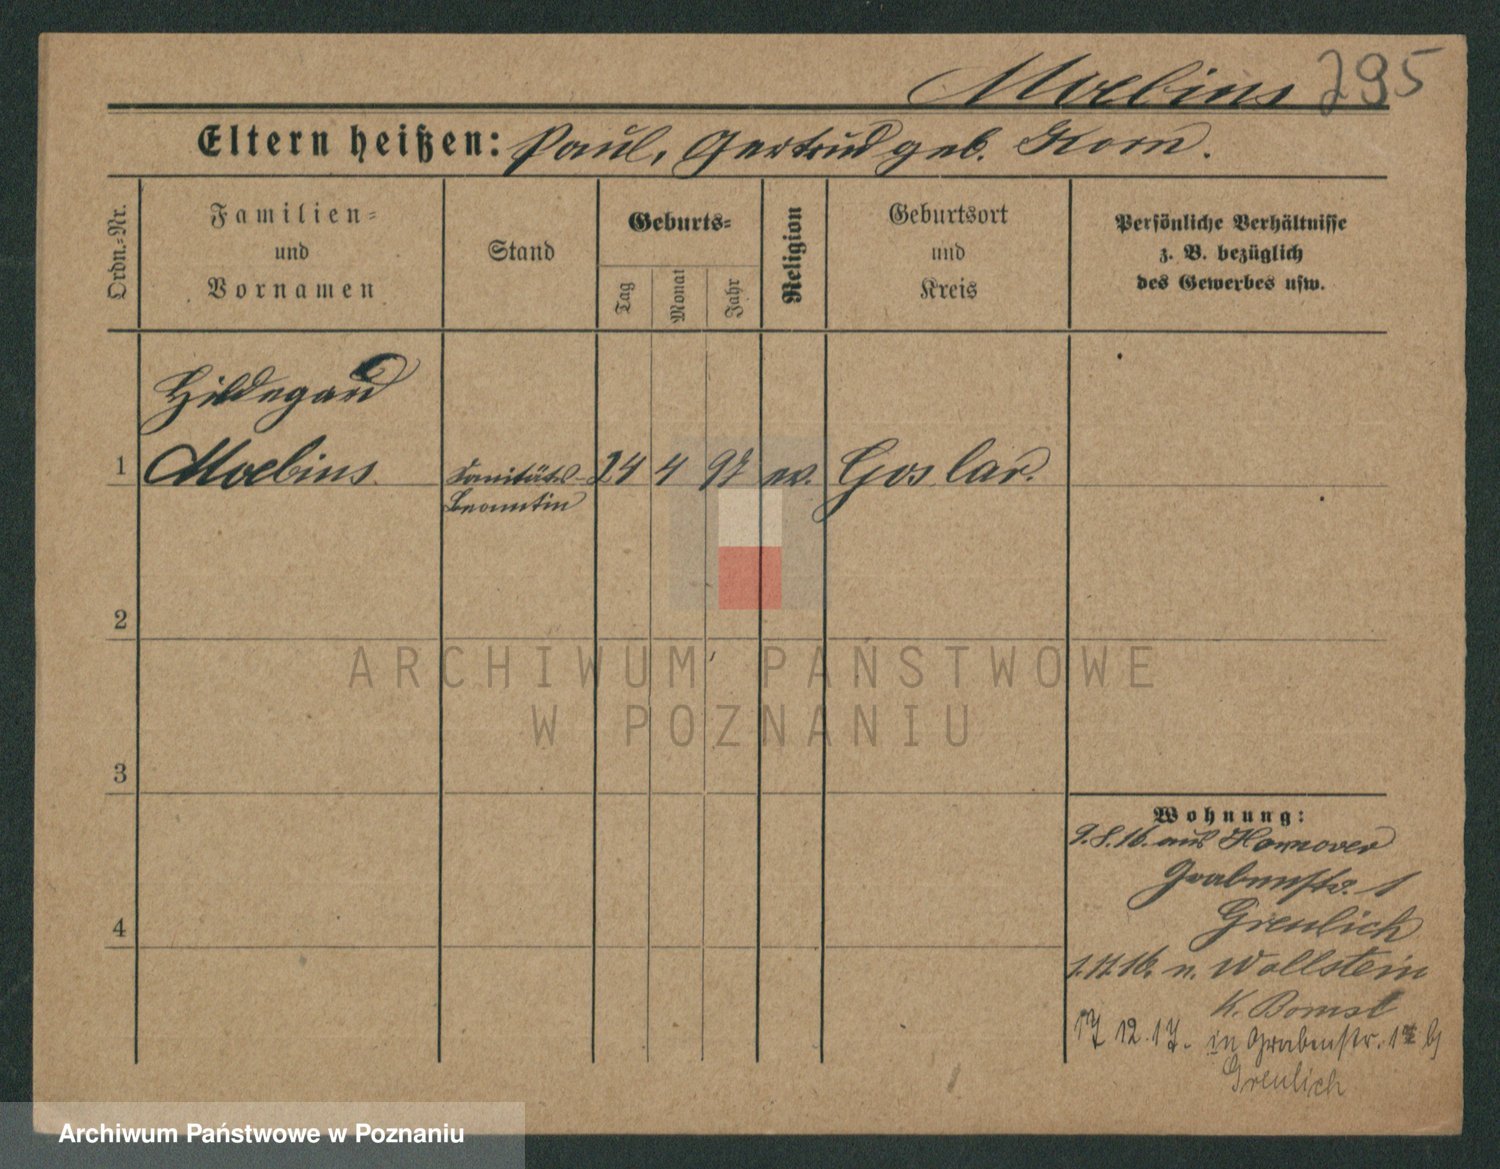 Moebius 295
Eltern heißen: Paul, Gertrud geb. Korn.
Ordn.=Nr.
Familien=
und
Vornamen
Stand
Geburts=
Tag
Monat
Jahr
Religion
Geburtsort
und
Kreis
Persönliche Verhältnisse
z. B. bezüglich
des Gewerbes usw.
Hildegard
1 Moebius. Sanitäts- 24 4 97 ev. Goslar.
Beamtin
2
ARCHIWUM PAŃSTWOWE
W POZNANIU
3
Wohnung:
9.8.16. aus Hannover
Grabenstr. 1
Greulich
1.11.16. n. Wollstein
K. Bomst
17 12.17. in Grabenstr. 1
Greulich
4
Archiwum Państwowe w Poznaniu